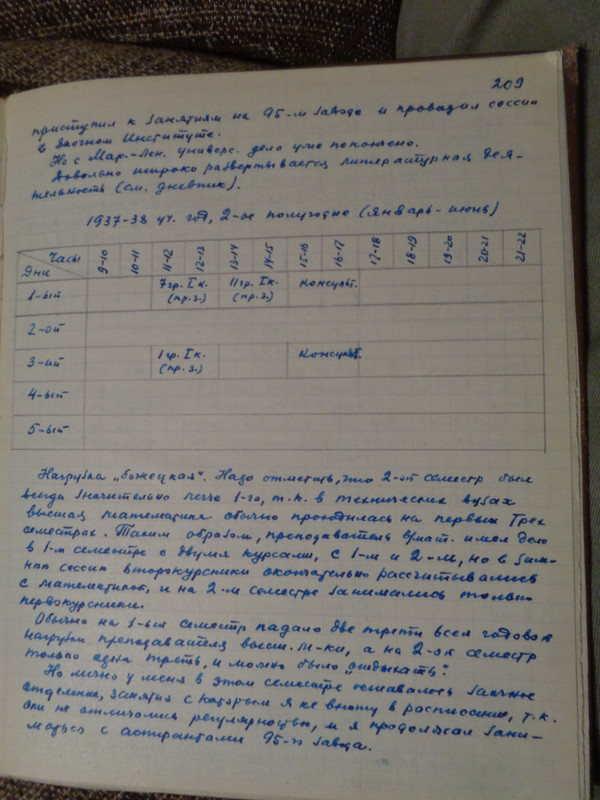 209
приступил к занятиям на 95-м заводе и проводил сессии
в Заочном Институте.
Но с Мар.-Лен. универс. дело уже покончено.
Довольно широко развертывается литературная дея-
тельность (см. дневник).
1937-38 уч. год, 2-ое полугодие (январь-июнь)
Часы
Дни
9-10 10-11 11-12 12-13 13-14 14-15 15-16 16-17 17-18 18-19 19-20 20-21 21-22
1-ый 7 гр. I к. 11 гр. I к. Консульт.
(пр.з.) (пр.з.)
2-ой
3-ий 1 гр. I к. Консульт.
(пр.з.)
4-ый
5-ый
Нагрузка „божецкая". Надо отметить, что 2-ой семестр был
всегда значительно легче 1-го, т.к. в технических вузах
высшая математика обычно проходилась на первых трех
семестрах. Таким образом, преподаватель в/мат. имел дело
в 1-м семестре с двумя курсами, с 1-м и 2-м, но в зим-
нюю сессию второкурсники окончательно рассчитывались
с математикой, и на 2-м семестре занимались только
первокурсники.
Обычно на 1-ый семестр падало две трети всей годовой
нагрузки преподавателя высш. м-ки, а на 2-ой семестр
только одна треть, и можно было „отдыхать".
Но лично у меня в этом семестре оставалось заочное
отделение, занятия с которым я не вношу в расписание, т.к.
они не отличались регулярностью, и я продолжал зани-
маться с аспирантами 95-го завода.